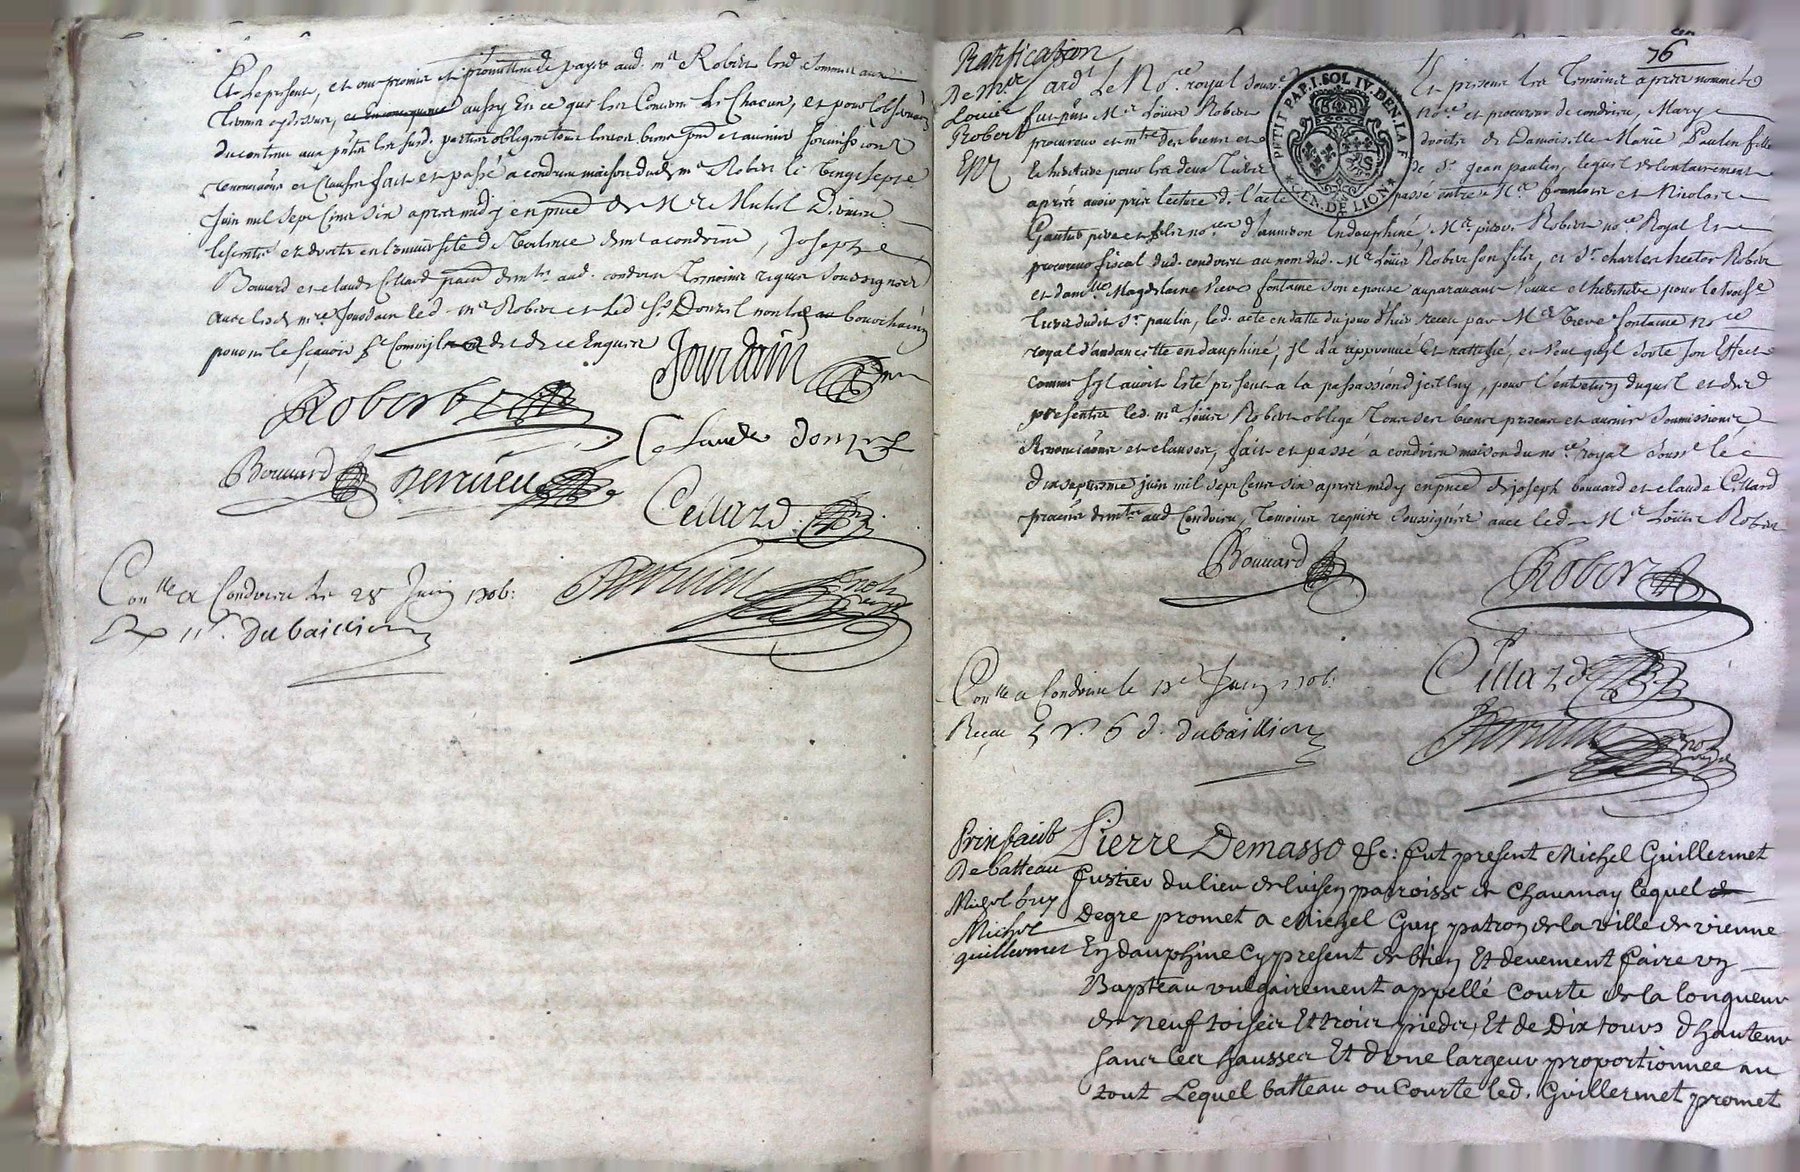 Et le present, et ont promis et promettent de payer aud. mr Robert lesd. sommes aux
termes cy dessus, aussy En ce que les Concerne Chacun, et pour l'observaon
du contenu aux pntes les susd. parties obligent tous leurs biens pnts et avenir soumissions
renonciaons et Clauses fait et passé a condrieu maison dud. mr Robert le Vingt sept
Juin mil sept Cens six apres midy en pnce de Mr Michel
licentié et droits en l'université de Valence dmt a condrieu, Joseph
Bouuard et claude Cillard dmts aud. condrieu Temoins requis soussignez
avec led. mre Jourdain led. mr Robert et led. Sr Donzel non les
pour ne le sçavoir de ce Enquis
Jourdain
Robert
Claude donzel
Bouuard deruieu
Cillard
Conlle a Condrieu le 28 Juin 1706:
dubaillion
76
Ratification
De Mre
Louis
Robert
Pardt Le Nore royal souss. Et presens les Temoins apres nommes
fut pnt Mr Loüis Robert nore et procureur de condrieu, Mary
procureur et mtre des biens et droits de Damoiselle Marie Paulin fille
et heritiere pour les deux Tiers de Sr jean paulin, lequel volontairement
apres avoir pris lecture de l'acte passé entre Mes francois et Nicolas
Gautier pere et fils nores d'anneron en dauphiné Mre pierre Robert nore Royal Et
procureur fiscal dud. condrieu au nom dud. Mr Loüis Robert son fils, et Sr charles hector Robert
et damlle Magdelaine Treve fontaine son epouse auparavant veuve et heritiere pour le troise
tiers dudit Sr paulin, led. acte en datte du jour d'huy receu par Mre Treve fontaine nore
royal d'andancette en dauphiné, jl l'a approuvé Et rattifié, et veut qu'jl sorte son Effect
comme s'jl avoit Esté present a la passassion d'jcelluy, pour l'entretien duquel et des
presentes led. mr Loüis Robert oblige Tous ses biens presens et avenir soumissions
Renonciaons et clauses, fait et passé a condrieu maison du nore royal souss. le
dixseptieme juin mil sept Cens six apres midy en pnce de joseph bouuard et claude Cillard
dmts aud. Condrieu, Temoins requis soussignés avec led. Mr Loüis Robert
Bouuard
Robert
Cillard
Conlle a Condrieu le Juin 1706:
Reçeu 6 d. dubaillion
PETIT PAP. 1. SOL. IV. DEN. LA F
GEN. DE LION
Prixfaict
De batteau
Michel Guy
Michel
guillermet
Pierre Demasso &c: fut present Michel Guillermet
fustier du lieu de luisey parroisse de Chavanay lequel
Degre promet a Michel Guy patron de la ville de vienne
En dauphine Cy present de bien Et devement faire vn
Bapteau vulgairement appellé Courte de la longueur
de neuf toises Et trois pieds, Et de Dix tours d'hauteur
sans les hausses Et d'vne largeur proportionnee au
tout Lequel batteau ou Courte led. Guillermet promet